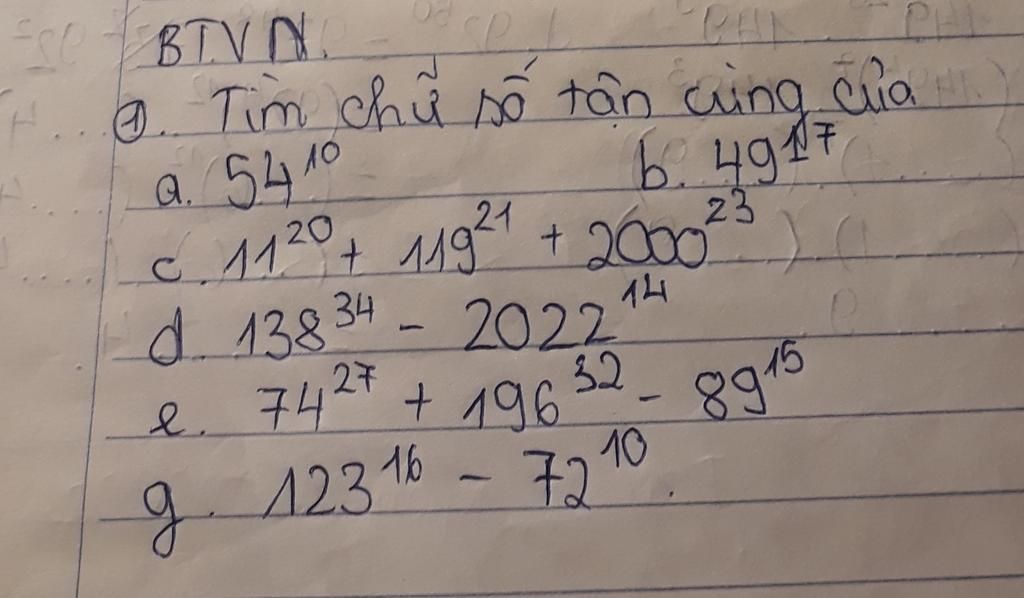 BTVN.
①. Tìm chữ số tận cùng của
a. 54¹⁰ b. 49¹⁷
c. 11²⁰ + 119²¹ + 2000²³
d. 138³⁴ - 2022¹⁴
e. 74²⁷ + 196³² - 89¹⁵
g. 123¹⁶ - 72¹⁰.